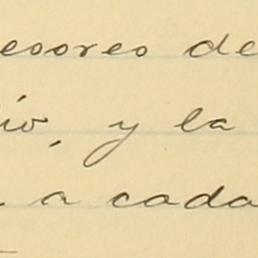 esores de
io, y la
a cada